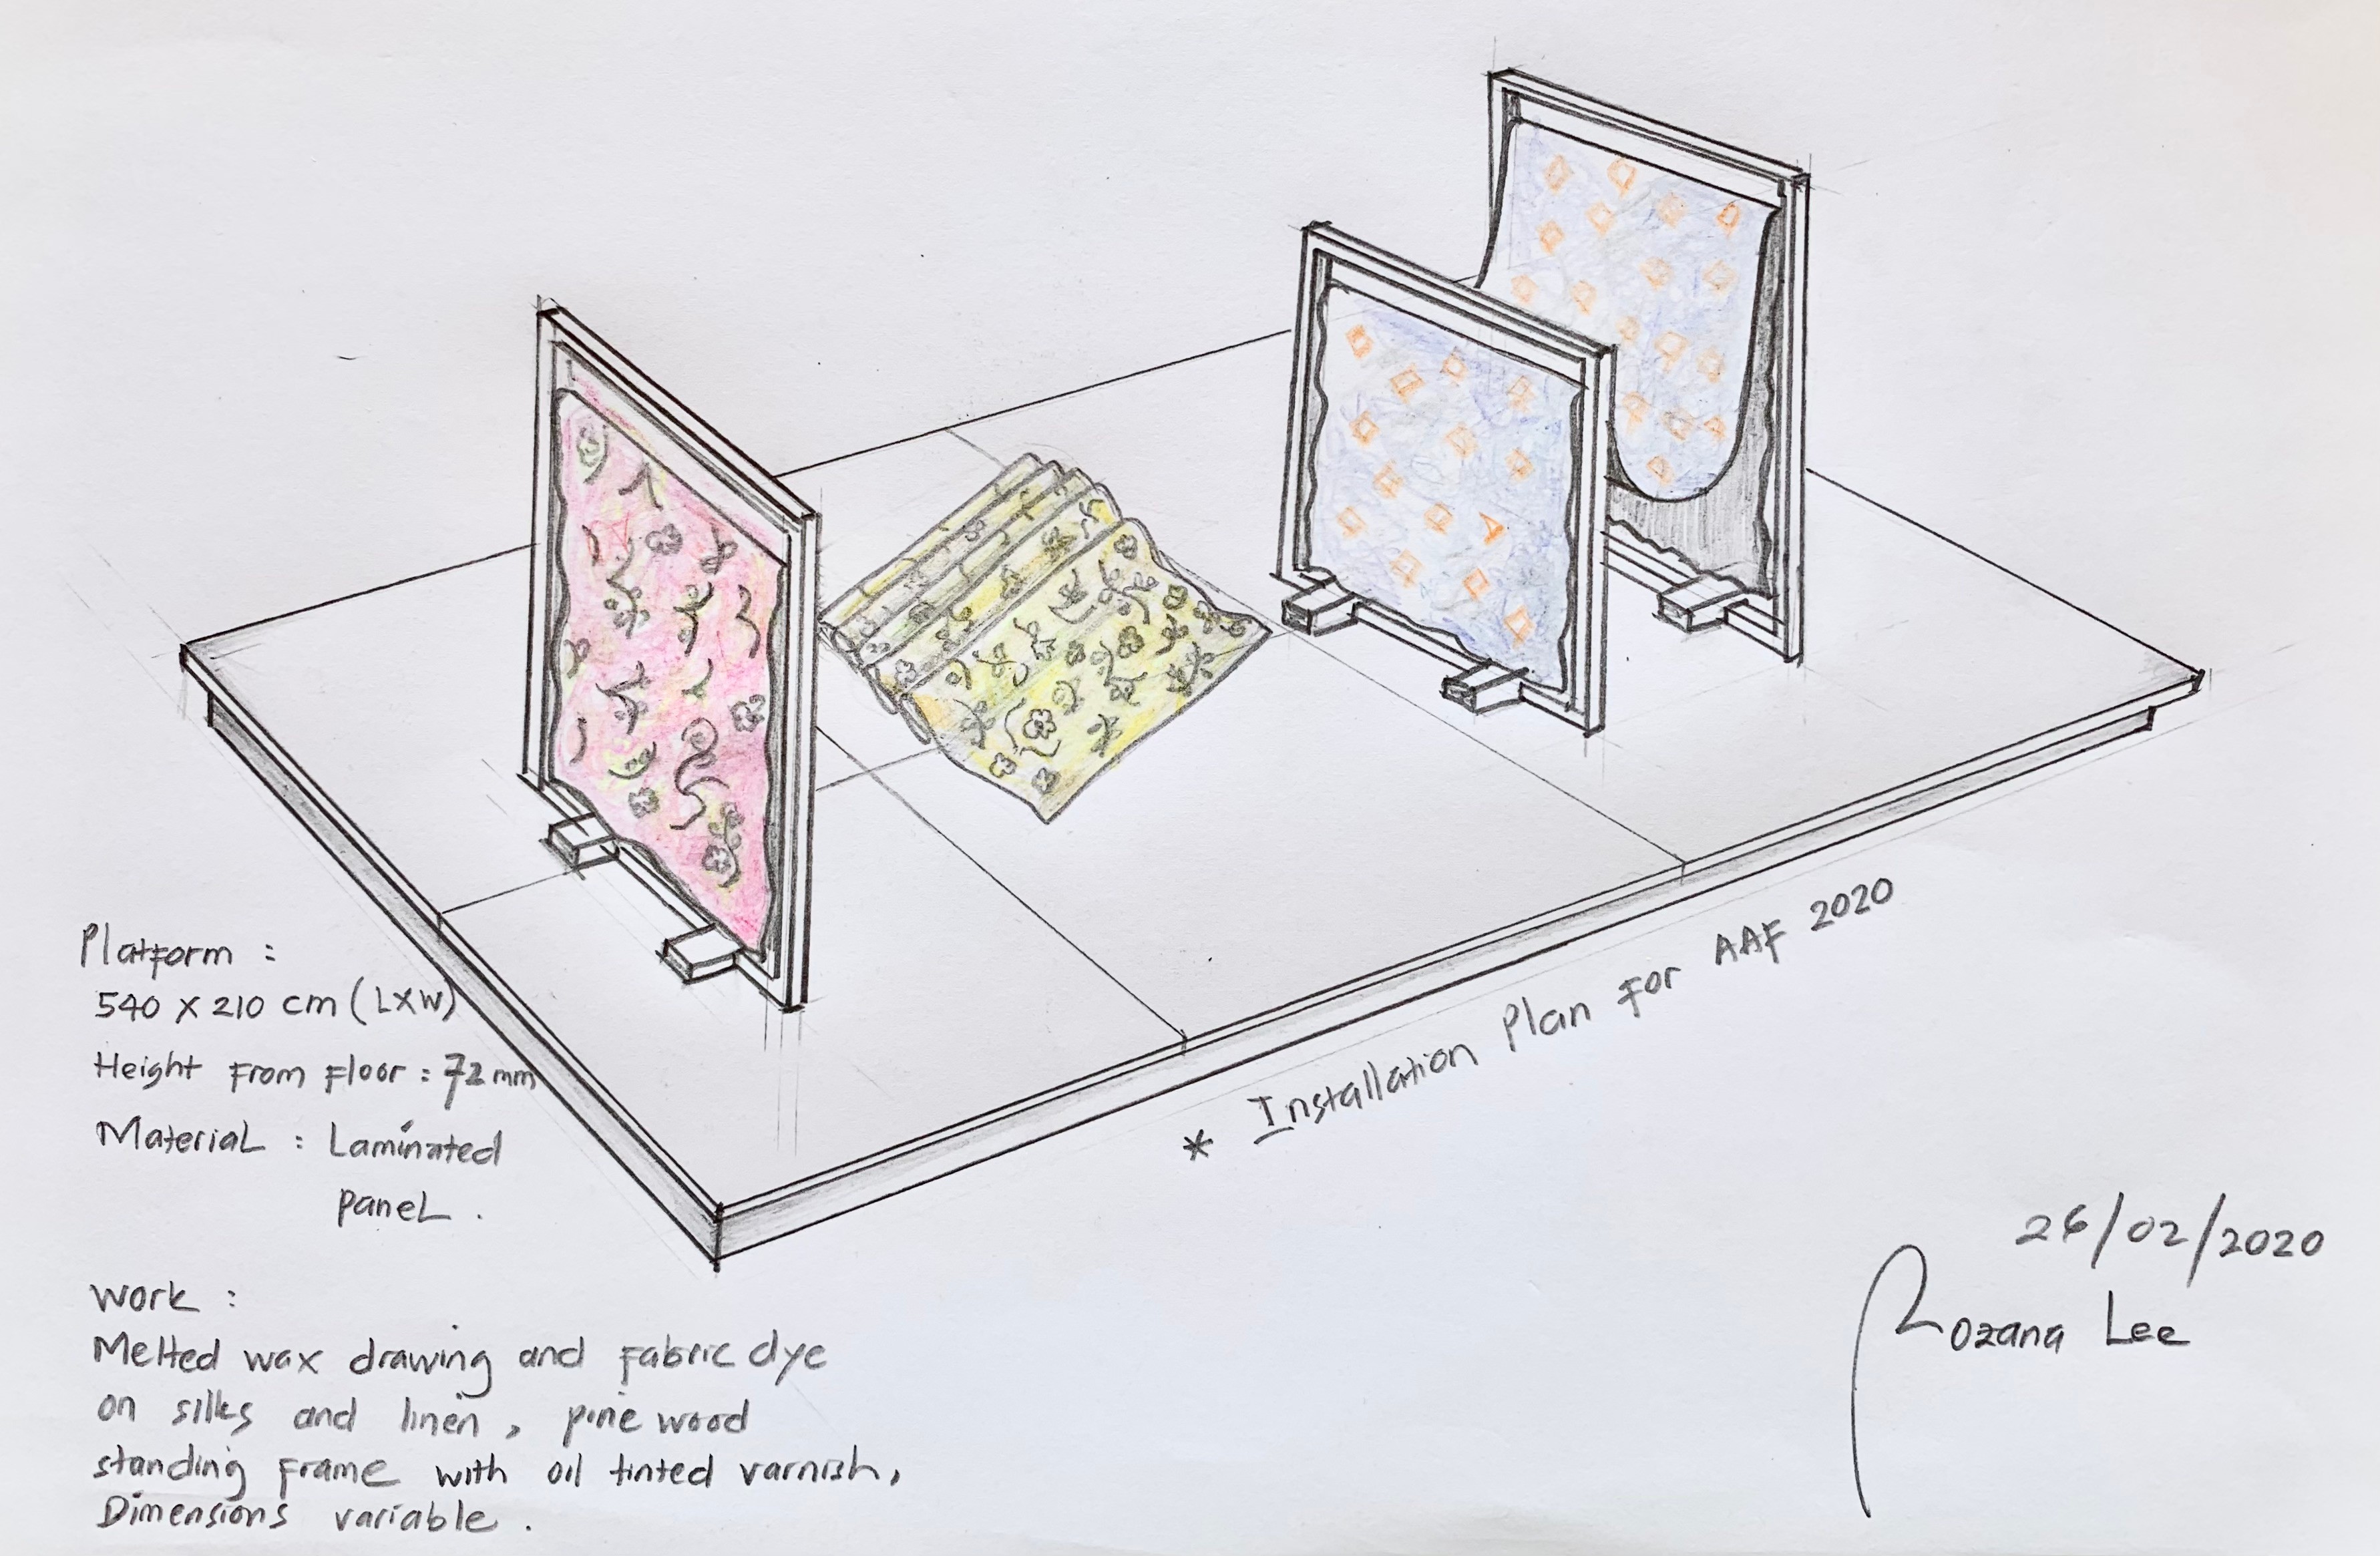 Platform :
540 x 210 cm (LXW)
Height from floor : 72 mm
Material : Laminated
panel .
Work :
Melted wax drawing and fabric dye
on silks and linen , pine wood
standing frame with oil tinted varnish,
Dimensions variable .
* Installation Plan for AAF 2020
26/02/2020
Rozana Lee